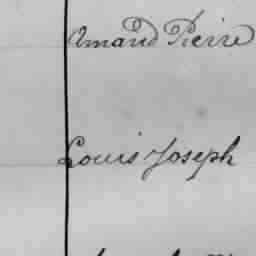 Amand Pierre
Louis Joseph